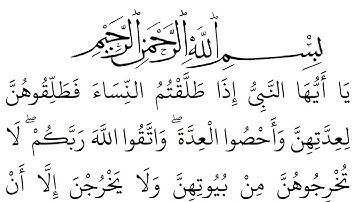 بِسْمِ اللَّهِ الرَّحْمَٰنِ الرَّحِيمِ
يَا أَيُّهَا النَّبِيُّ إِذَا طَلَّقْتُمُ النِّسَاءَ فَطَلِّقُوهُنَّ
لِعِدَّتِهِنَّ وَأَحْصُوا الْعِدَّةَ ۖ وَاتَّقُوا اللَّهَ رَبَّكُمْ ۖ لَا
تُخْرِجُوهُنَّ مِنْ بُيُوتِهِنَّ وَلَا يَخْرُجْنَ إِلَّا أَنْ